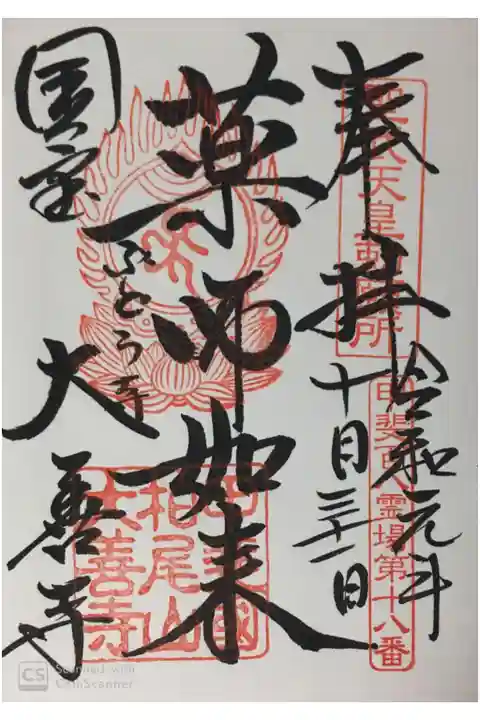 奉拝
令和元年
十月三十一日
薬師如来
国宝
ぶどう寺
大善寺
聖武天皇勅願所
甲斐百霊場第十八番
甲斐國
柏尾山
大善寺
CS Scanned with
CamScanner